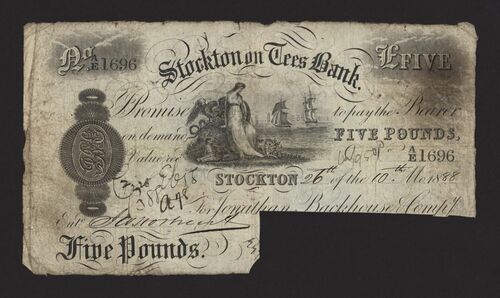 No A/E 1696 £FIVE
Stockton on Tees Bank.
I Promise to pay the Bearer
on demand FIVE POUNDS,
Value recd A/E 1696
STOCKTON 26th of the 10th Mo. 1888
For Jonathan Backhouse & Compy.
Entd
Five Pounds.